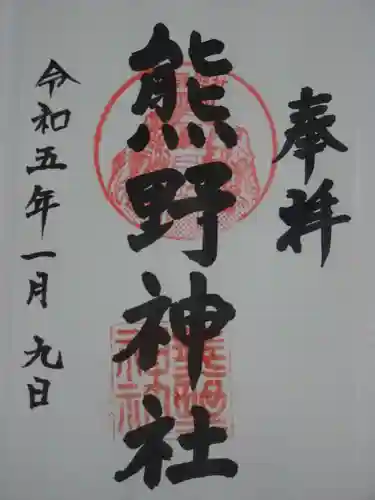 奉拝
熊野神社
令和五年一月九日